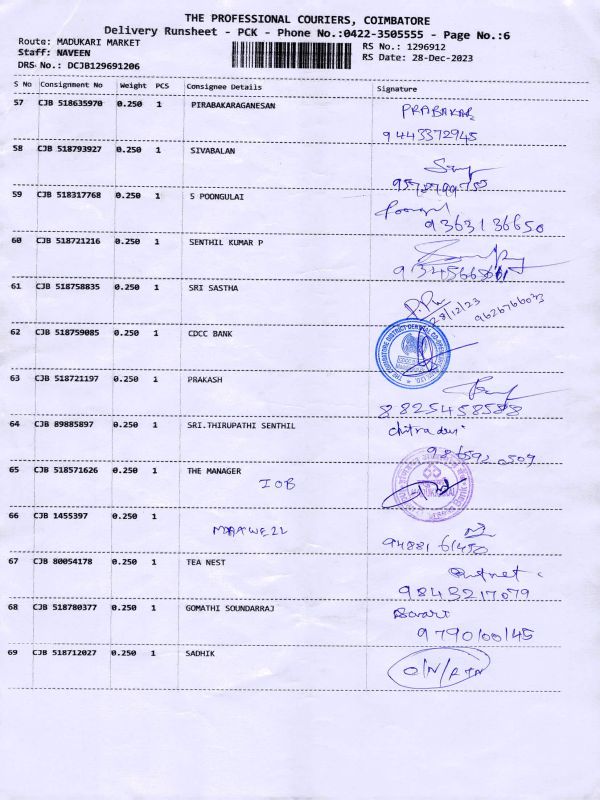 THE PROFESSIONAL COURIERS, COIMBATORE
Delivery Runsheet - PCK - Phone No.:0422-3505555 - Page No.:6
Route: MADUKARI MARKET RS No.: 1296912
Staff: NAVEEN RS Date: 28-Dec-2023
DRS No.: DCJB129691206
S No Consignment No Weight PCS Consignee Details Signature
57 CJB 518635970 0.250 1 PIRABAKARAGANESAN PRABAKAR
9443372945
58 CJB 518793927 0.250 1 SIVABALAN
59 CJB 518317768 0.250 1 S POONGULAI
9363136650
60 CJB 518721216 0.250 1 SENTHIL KUMAR P
61 CJB 518758835 0.250 1 SRI SASTHA
28/12/23 9626766033
62 CJB 518759085 0.250 1 CDCC BANK
63 CJB 518721197 0.250 1 PRAKASH
8825458588
64 CJB 89885897 0.250 1 SRI.THIRUPATHI SENTHIL chitra devi
65 CJB 518571626 0.250 1 THE MANAGER
IOB
66 CJB 1455397 0.250 1
94881 61450
67 CJB 80054178 0.250 1 TEA NEST
9843217079
68 CJB 518780377 0.250 1 GOMATHI SOUNDARRAJ
9790100145
69 CJB 518712027 0.250 1 SADHIK
O/N/RTN